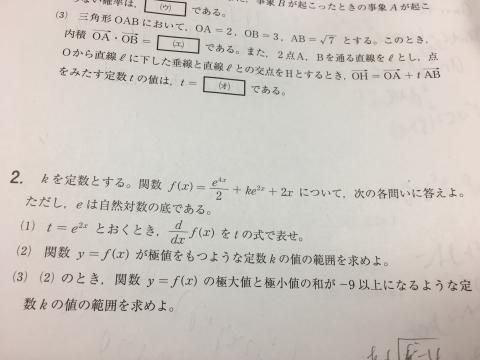 ない確率は，(ウ) である。
事象Bが起こったときの事象Aが起こ
(3) 三角形OABにおいて，OA＝2，OB＝3，AB＝√7 とする。このとき，
内積 OA・OB＝ (エ) である。また，2点A，Bを通る直線をℓとし，点
Oからℓに下した垂線と直線ℓとの交点をHとするとき，OH＝OA＋tAB
をみたす定数tの値は，t＝ (オ) である。
2. kを定数とする。関数 f(x)＝e^{4x}/2＋ke^{2x}＋2x について，次の各問いに答えよ。
ただし，eは自然対数の底である。
(1) t＝e^{2x} とおくとき，d/dx f(x) をtの式で表せ。
(2) 関数 y＝f(x) が極値をもつような定数kの値の範囲を求めよ。
(3) (2)のとき，関数 y＝f(x) の極大値と極小値の和が−9以上になるような定
数kの値の範囲を求めよ。